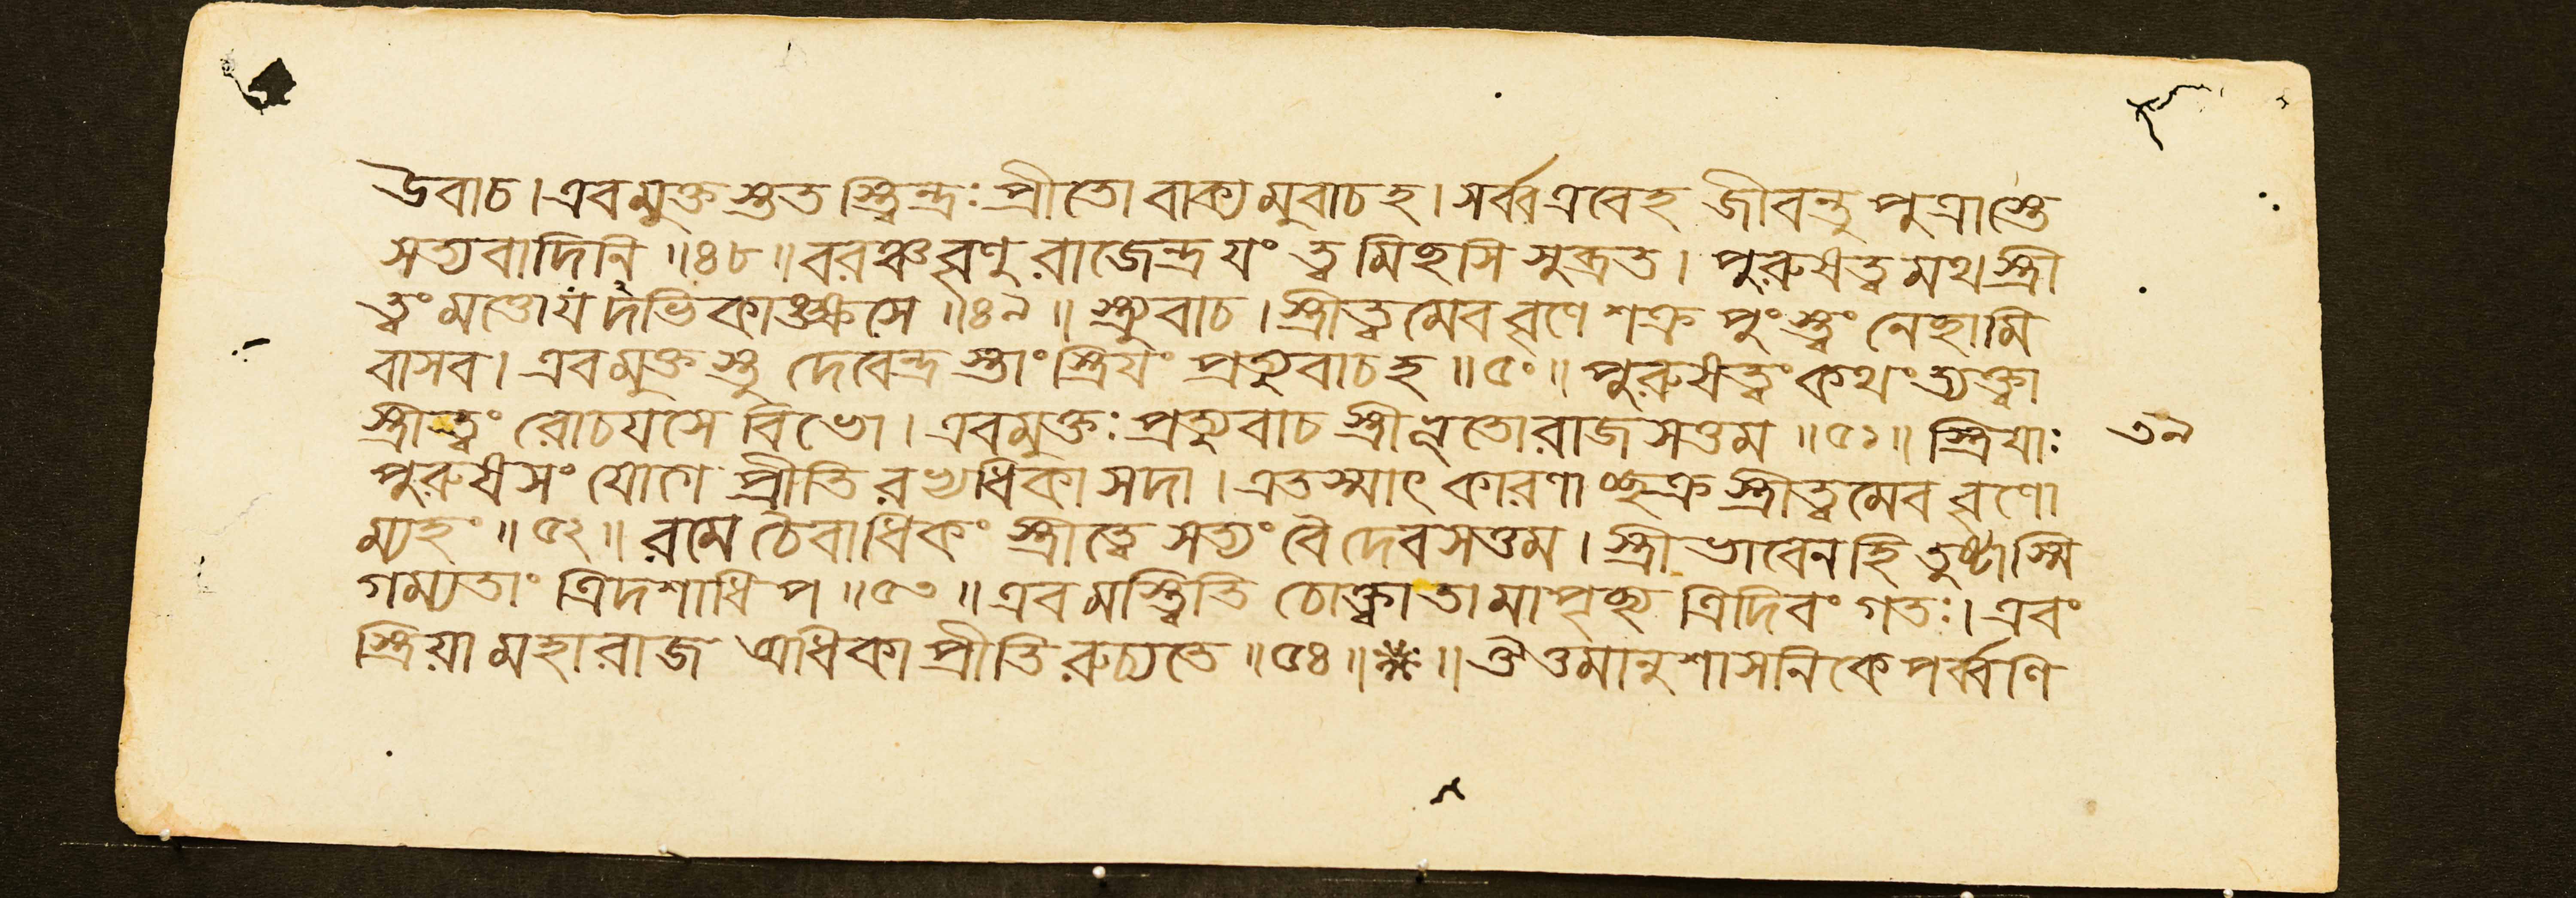 উবাচ। এবমুক্তস্তুত স্ত্বিন্দ্রঃ প্রীতো বাক্যমুবাচহ। সর্ব্বএবেহ জীবন্তু পুত্রাস্তে
সত্যবাদিনি॥৪৮॥ বরঞ্চ বৃণু রাজেন্দ্র যং ত্বমিহসি সুব্রত। পুরুষত্বমথ স্ত্রী
ত্বং মত্তোযদভিকাঙ্ক্ষসে॥৪৯॥ স্ত্র্যুবাচ। স্ত্রীত্বমেব বৃণে শক্র পুংস্ত্বং নেহামি
বাসব। এবমুক্তস্তু দেবেন্দ্রস্তাং স্ত্রিযং প্রত্যুবাচহ॥৫০॥ পুরুষত্বং কথং ত্যক্ত্বা
স্ত্রীত্বং রোচযসে বিভো। এবমুক্তঃ প্রত্যুবাচ স্ত্রীভূতো রাজসত্তম॥৫১॥ স্ত্রিযাঃ
পুরুষসংযোগে প্রীতিরভ্যধিকা সদা। এতস্মাৎ কারণাচ্ছক্র স্ত্রীত্বমেব বৃণো
ম্যহং॥৫২॥ রমে চৈবাধিকং স্ত্রীত্বে সত্যং বৈ দেবসত্তম। স্ত্রীভাবেন হি তুষ্টাস্মি
গম্যতাং ত্রিদশাধিপ॥৫৩॥ এবমস্ত্বিতি চোক্ত্বা তামাপৃচ্ছ্য ত্রিদিবং গতঃ। এবং
স্ত্রিয়া মহারাজ অধিকা প্রীতিরুচ্যতে॥৫৪॥ ❋ ॥ ঔত্তমানুশাসনিকে পর্ব্বণি
৩৯